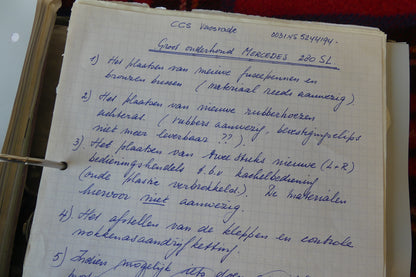 CCS Voorstade
0031455244194.
Groot onderhoud MERCEDES 280 SL
1) Het plaatsen van nieuwe fuseepennen en
bronzen bussen (materiaal reeds aanwezig)
2) Het plaatsen van nieuwe rubberhoezen
achteras. (rubbers aanwezig, bevestigingsclips
niet meer leverbaar ??).
3) Het plaatsen van twee stuks nieuwe (L+R)
bedieningshendels t.b.v kachelbediening
(oude plastic verbrokkeld). De materialen
hiervoor niet aanwezig.
4) Het afstellen van de kleppen en controle
nokkenasaandrijfketting
5) Indien mogelijk iets doen